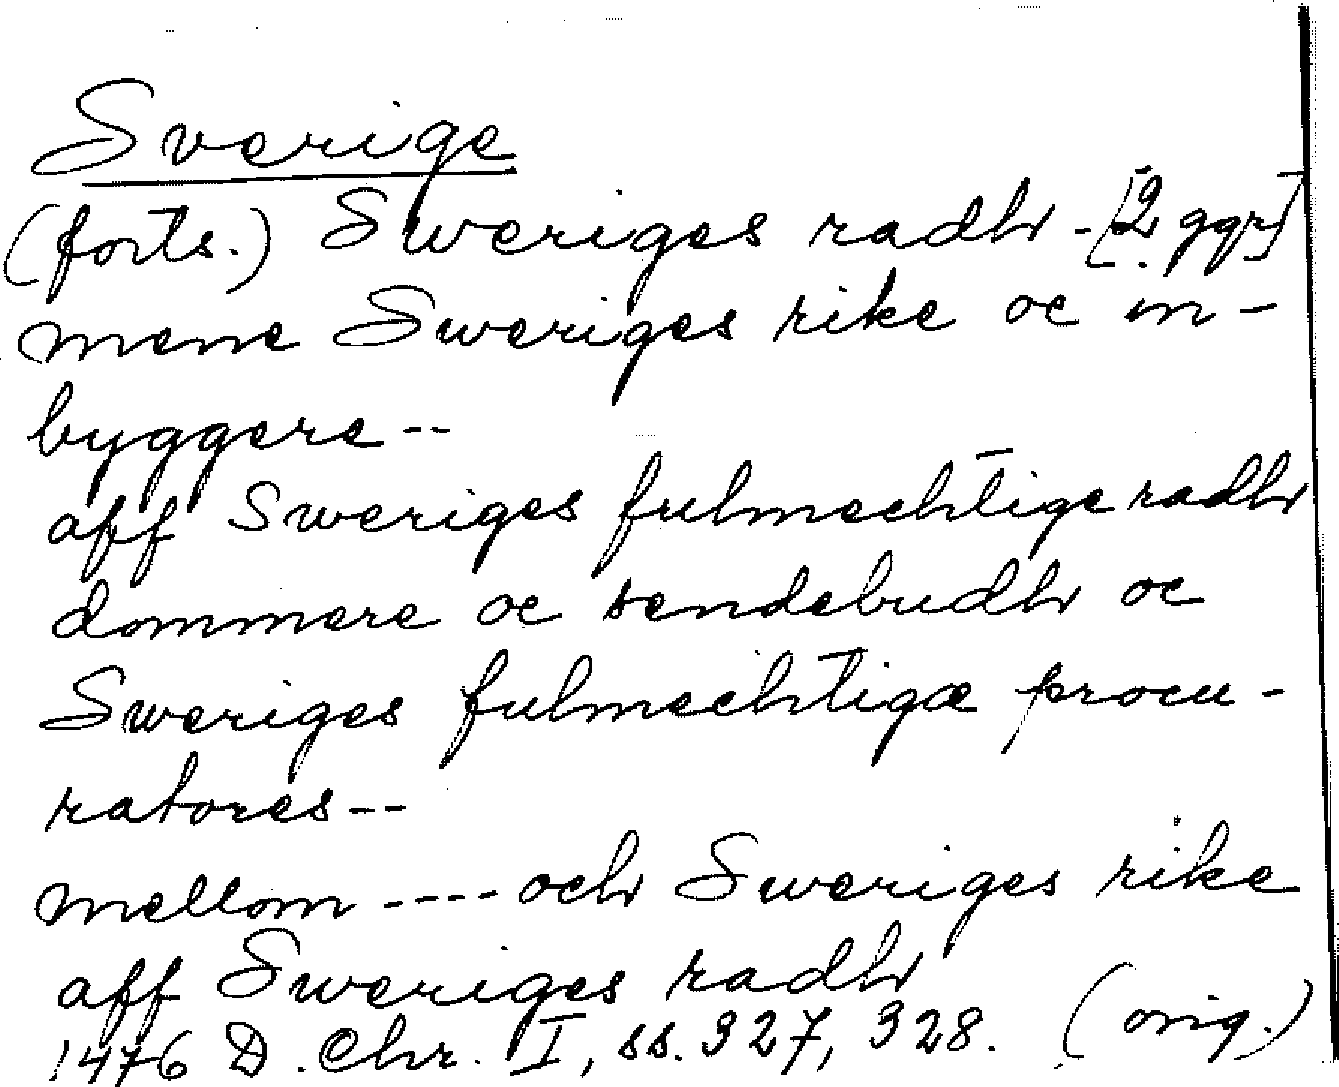 Sverige
(forts.) Sweriges radh - [2 ggr]
mene Sweriges rike oc in-
byggere--
aff Sweriges fulmechtige radh
dommere oc sendebudh oc
Sweriges fulmechtigæ procu-
ratores--
mellom ---- och Sweriges rike
aff Sweriges radh
1476 D. Chr. I, ss. 327, 328. (orig.)